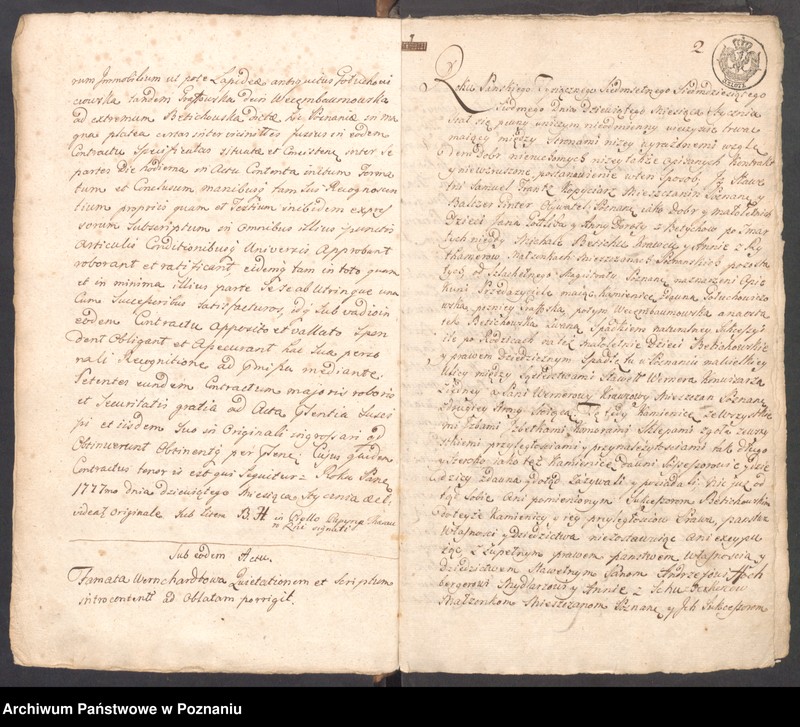 rum Immobilium ut pote Lapideæ antiquitus Gołuchowi
ciowska tandem Grątkowska dein Wexembaumowska
ad extremum Betichowska dictæ hic Posnaniæ in ma
gna platea
Contractu Specificatas situata et Consistens inter se
partes Die hodierna in Actu Contenta initum Forma
tum et Conclusum manibusq tam Suis Recognoscen
tium proprijs quam et Testium inibidem expres
sorum Subscriptum in Omnibus illius punctis
Articulis Conditionibusq Universis Approbant
roborant et ratificant, eidemq tam in toto quam
et in minima illius parte Se se ab Utrinque una
Cum Successoribus Satisfacturos, idq Sub vadio in
eodem Contractu Apposito et vallato Spon
dent Obligant et Assecurant hac Sua perso
nali Recognitione ad præmissa mediante.
Petentes eundem Contractum majoris roboris
et Securitatis gratia ad Acta præsentia Susci
pi et iisdem Suo in Originali ingrossari
Obtinuerunt Obtinentq per præsentes. Cujus quidem
Contractus tenor is est qui Sequitur. Roku Pańs
1777mo dnia dziewiątego Miesiąca Stycznia &c.
videat Originale Sub litera B. H
signati
Sub eodem Actu.
Famata Wernchardtowa Quietationem et Scriptum
introcontenti ad Oblatam porrigit.
2
Roku Pańskiego Tysiącznego Siedmsetnego Siedmdziesiątego
Siodmego Dnia Dziewiątego Miesiąca Stycznia
Stał się pewny niniejszym nieodmienny wieczyście trwa
maiący między Stronami niżey wyraźonemi wzglę
dem Dobr nieruchomych niżey także Opisanych Kontrakt
y niewzruszone postanowienie w ten Sposob, Iż Sław
tni Samuel Frantz Kopyciarz Mieszczanin Poznans y
Balcer Ginter Obywatel Poznans iako Dobr y małoletnich
Dzieci Jana Gottliba y Anny Doroty z Betychow po Zmar
łych niegdy Michale Betichu Krawcu y Annie z
Małżonkach Mieszczanach Poznańskich pozosta
łych od Szlachetnego Magistratu Poznans naznaczeni Opie
kuni Przedaży tyle maiąc Kamienicę Zdawna Gołuchowiczo
wska pozniey Grątkowska potym Wexembaumowska a na osta
tek Betichowska zwana Spadkiem naturalney Sukcessyi
ile po Rodzicach na też Małoletnie Dzieci Betichowskie
y prawem dziedzicznym Spadłe tu w Poznaniu na wielkiey
Ulicy między Sąsiedztwami Sławętt Wernera Konwisarza
z iedney a Pani Wernerowy Krawcowy Mieszczan Poznans
z drugiey Strony leżącą. Tę tedy Kamienicę ze Wszystkie
mi Izbami Izbetkami Komorami Sklepami zgoła ze wszy
stkiemi przyległościami y przynależytościami tak długo
y szeroko iako też Kamienice dawni Possessorowie y Dzie
dzicy zdawna dotąd Zażywali y posiadali nic już od
tąd Sobie Ani pomienionym Sukcessorom Betichowskim
do teyże Kamienicy y iey przyległościow Prawa, państwa
Własności y dziedzictwa niezostawuiąc Ani excypu
iąc, z Zupełnym prawem państwem Własnością y
Dziedzictwem Sławetnym Panom Andrzeiowi Hoch
bergerowi Mydlarzowi y Annie z
Małżonkom Mieszczanom Poznans y Ich Sukcessorom
Archiwum Państwowe w Poznaniu